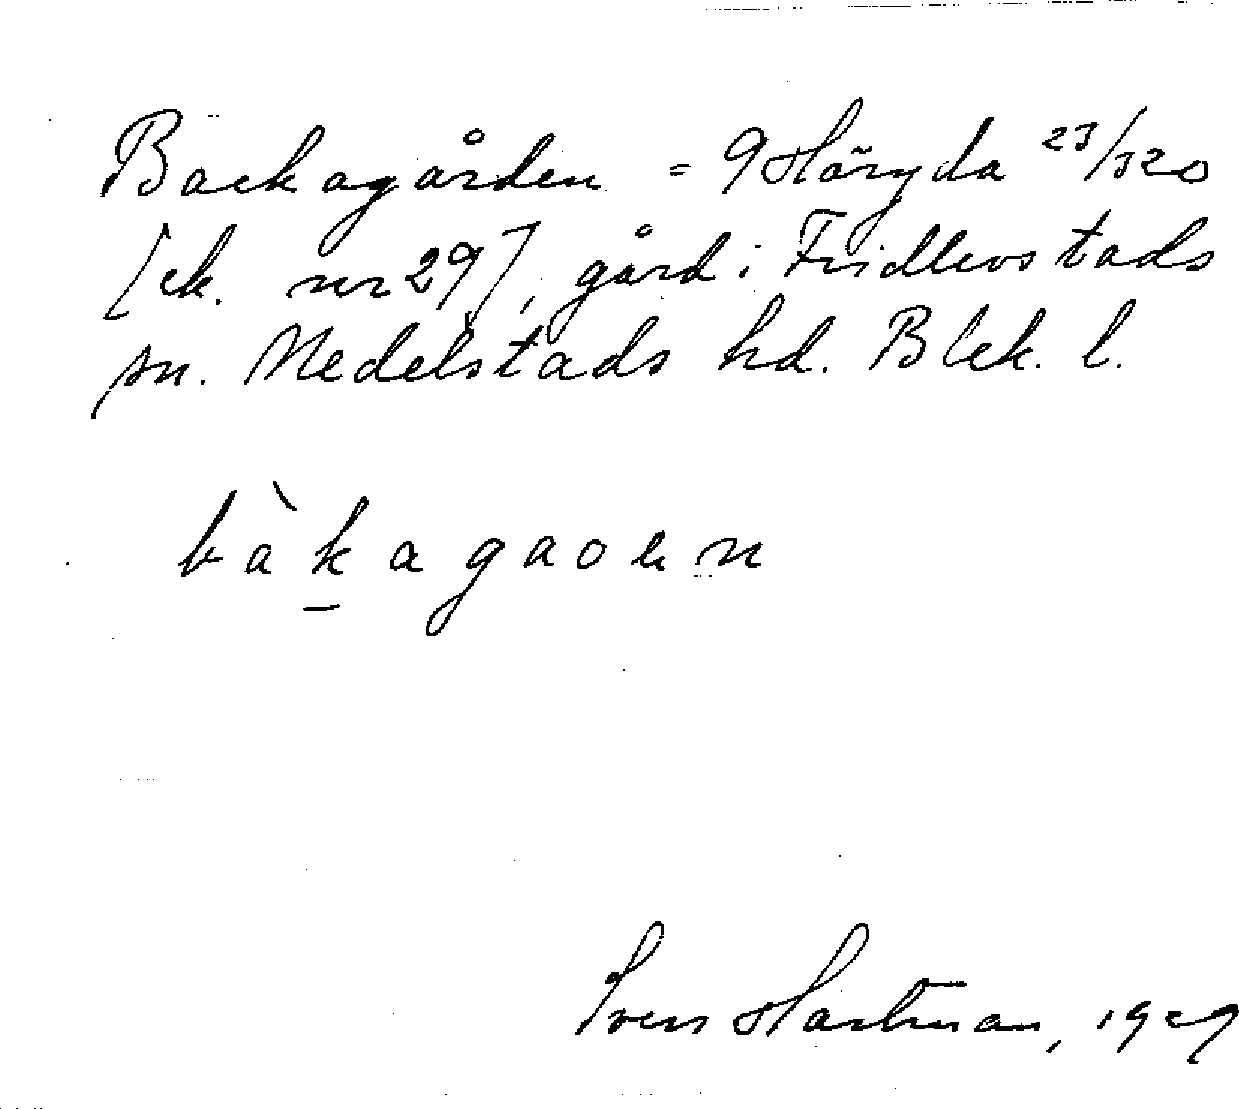 Backagården = 9 Häryda 23/320
[ek. nr 29], gård i Fridlevstads
sn. Medelstads hd. Blek. l.
bàkagaoen
Sven Hartman, 1929